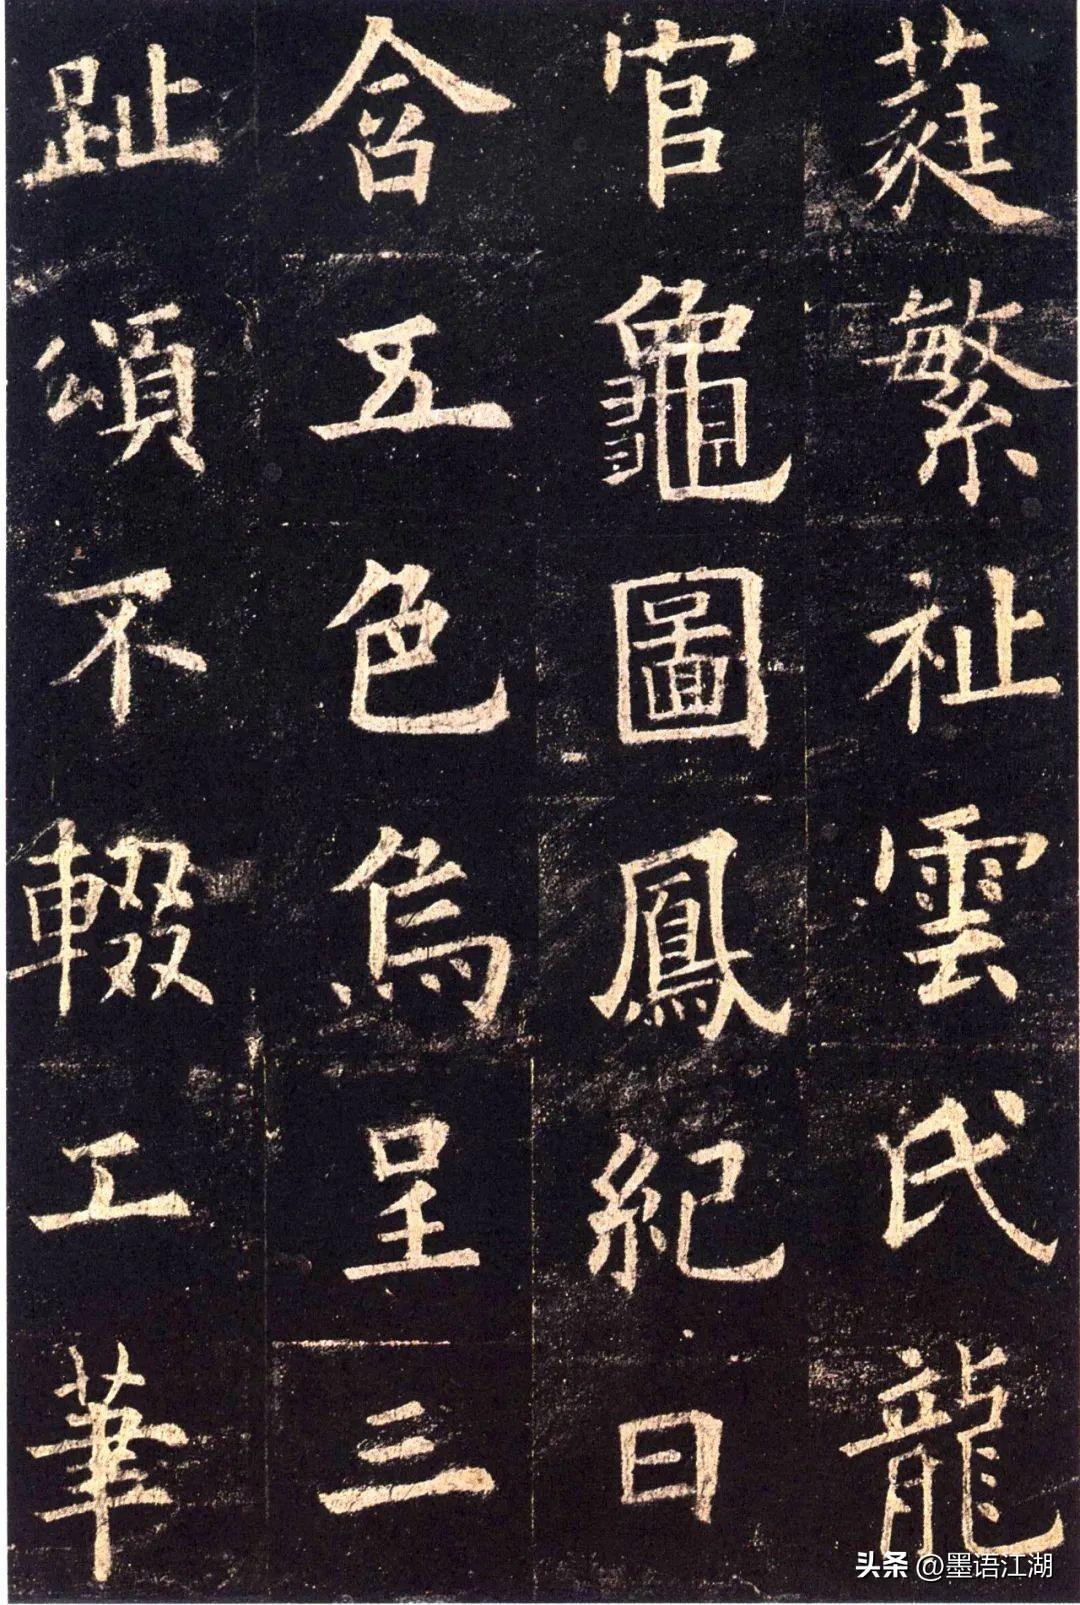 蕤繁祉雲氏龍
官龜圖鳳紀日
含五色烏呈三
趾頌不輟工筆
头条 @墨语江湖